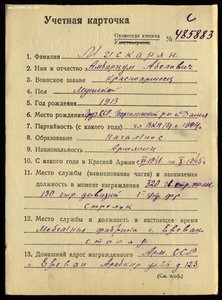 С
Учетная карточка
Орденская книжка № 485883
1. Фамилия Мискарян
2. Имя и отчество Амбарцум Абелович
3. Воинское звание Красноармеец
4. Пол Мужской
5. Год рождения 1913
6. Место рождения
7. Партийность (с какого года)
8. Образование Начальное
9. Национальность Армянин
10. С какого года в Красной Армии с 1941 по 1945г.
11. Место службы (наименование части) и занимаемая
должность в момент награждения 528
130 стр. дивизии
Стрелок
12. Место службы и должность в настоящее время
Мебельная фабрика г. Ереван
столяр
13. Домашний адрес награжденного Арм. ССР
г. Ереван Арабкир ул. 26 д 123.
(См. наоб.)